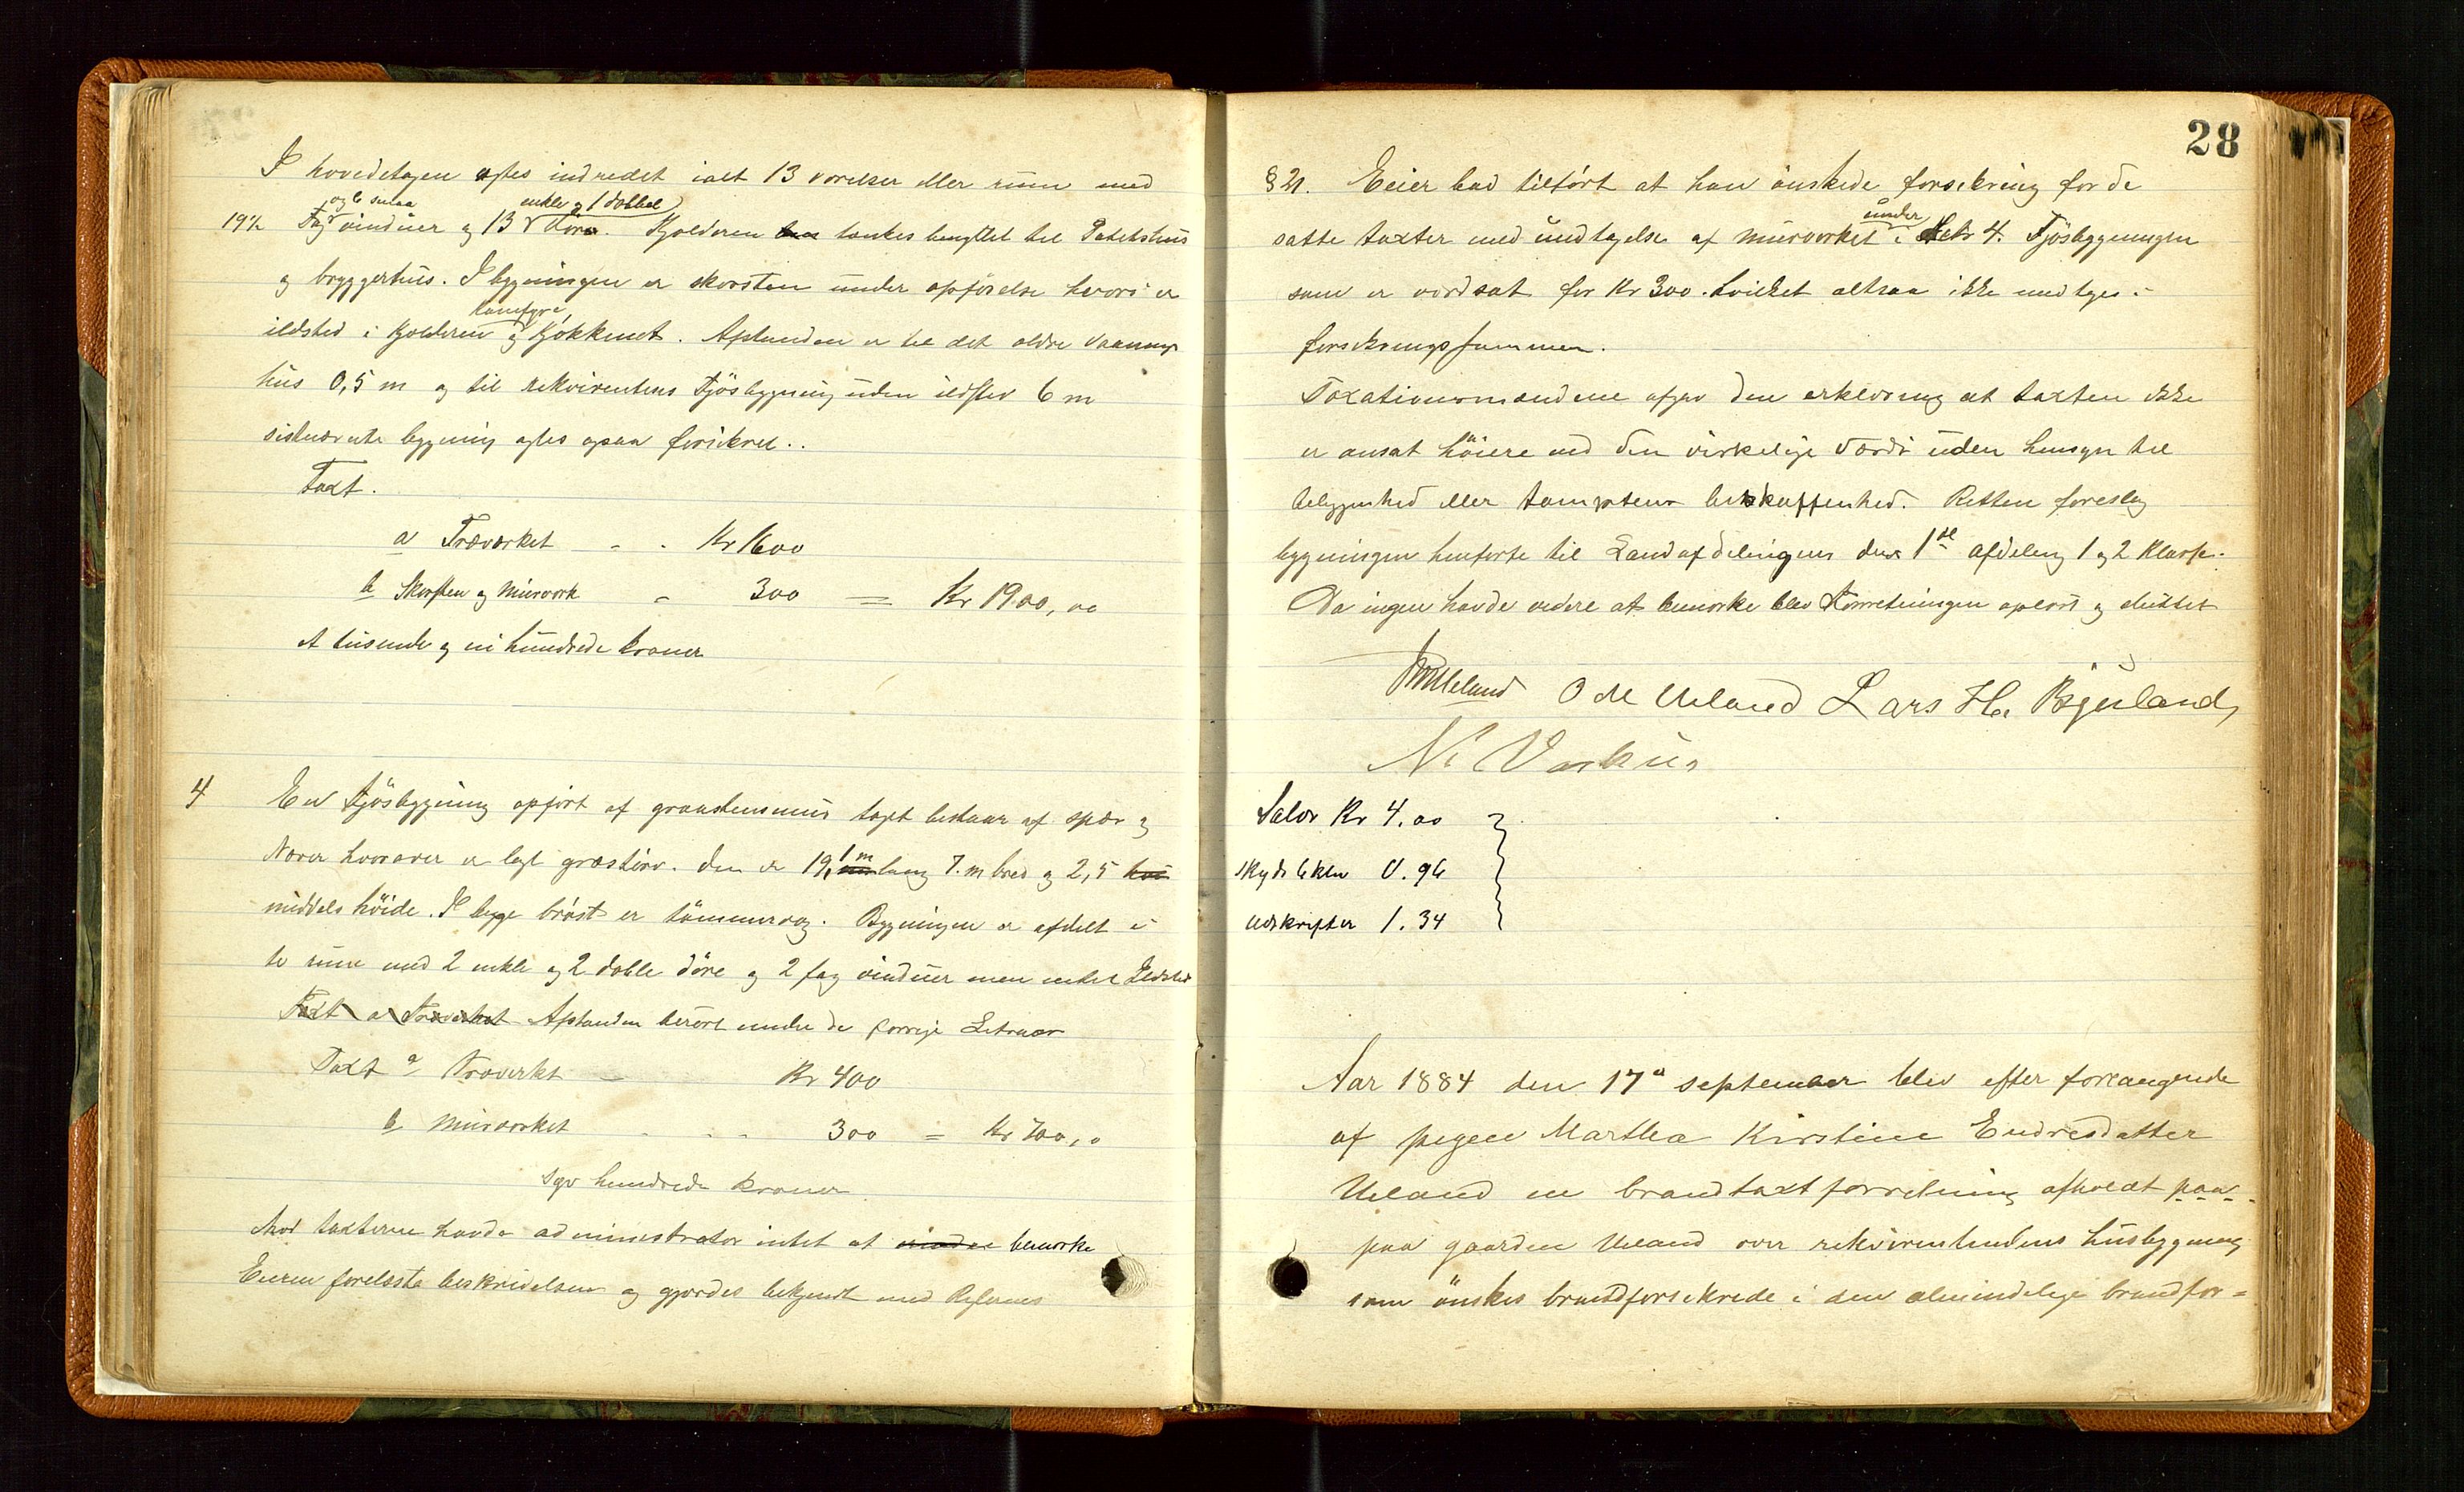 I hovedetagen agtes indredet ialt 13 værelser eller rum med
og 6 smaa enkle og 1 dobbel
19½ Fag vinduer og 13 Döre. Kjelderen tænkes benyttet til Potetshus
og bryggerhus. I bygningen er skorsten under opförelse hvori er
komfyr
ildsted i Kjelderen og Kjökkenet. Afstanden er til det ældre Vaanings
hus 0,5 m og til rekvirentens Fjösbygning uden ildsted 6 m
sistnævnte bygning agtes ogsaa forsikret.
Taxt.
a Træværket - - Kr 1600
b Skorsten og Murværk - 300 = Kr 1900,00
et tusende og ni hundrede kroner
4 En Fjösbygning opfört af graastensmur taget bestaar af spær og
Næver hvorover er lagt græstörv. Den er 19,1 m lang 7. m bred og 2,5
middels höide. I begge bröst er tömmer og. Bygningen er afdelt i
to rum med 2 enkle og 2 doble döre og 2 fag vinduer men intet Ildsted
Taxt a Træværket Afstanden beröret under de forrige Litraer
Taxt a Træverket - Kr 400
b Murværket - - - 300 = Kr 700,0
syv hundrede kroner.
Mod taxterne havde administrator intet at bemærke
Eieren forelæste beskrivelsen og gjordes bekjendt med Reglernes
28
§ 21. Eeier bad tilfört at han önskede forsekring for de
under
satte taxter med undtagelse af murværket i Litr 4. Fjösbygningen
som er værdsat for Kr 300. hvilket altsaa ikke medtages i
forsekringssummen.
Taxationsmændene afgav den erklæring at taxten ikke
er ansat höiere end den virkelige Værdi uden hensyn til
beliggenhed eller tomptens beskaffenhed. Retten foreslog
bygningen henförte til Landafdelingens den 1ste afdeling 1 og 2 Klasse.
Da ingen havde videre at bemærke blev Forretningen oplæst og sluttet
Ueland O M Ueland Lars H. Bjuland,
Salær Kr 4.00
skyds 6 klm 0.96
Udskrifter 1.34
Aar 1884 den 17de september blev efter forlangende
af pigen Martha Kirstine Endresdatter
Ueland en brandtaxtforretning afholdt paa
paa gaarden Ueland over rekvirentindens husbygning
som önskes brandforsekrede i den almindelige brandfor=